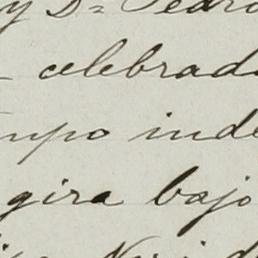 y Dⁿ Pedro
celebrad
mpo inde
gira bajo